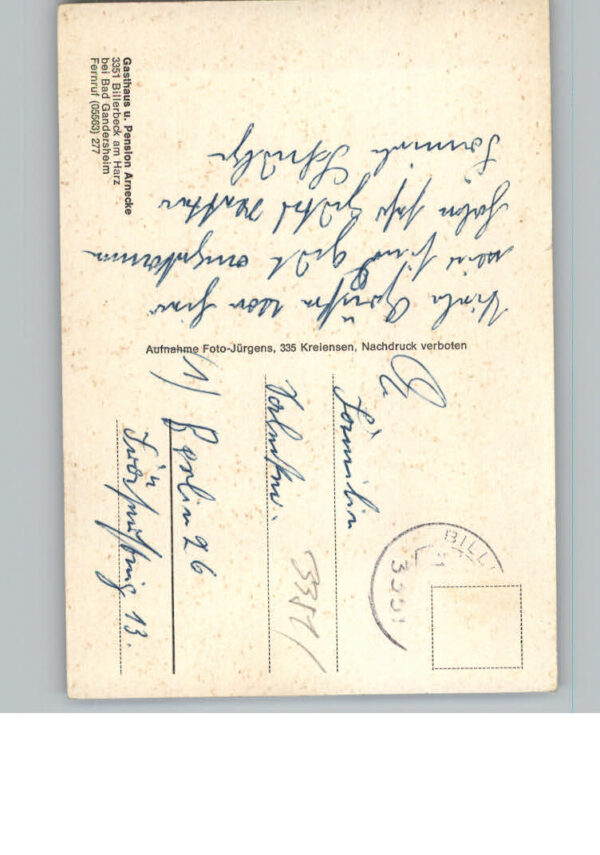 Gasthaus u. Pension Arnecke
3351 Billerbeck am Harz
bei Bad Gandersheim
Fernruf (05563) 277
Viele Grüße von hier
wir sind gut angekommen
haben sehr gutes Wetter
Familie
Aufnahme Foto-Jürgens, 335 Kreiensen, Nachdruck verboten
BILL
3351
An
Familie
3351/
1/ Berlin 26
13.